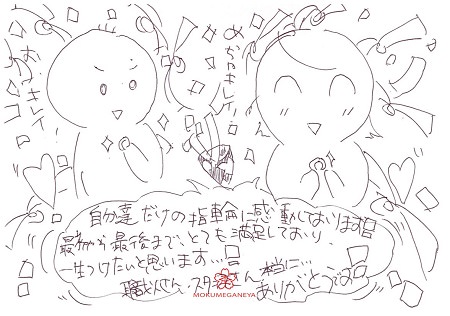 キレイ
キレイ
自分達だけの指輪に感動しております
最初から最後まで、とても満足しており、
一生つけたいと思います…
職人さん・スタ さん 本当に…
ありがとうです
MOKUMEGANEYA